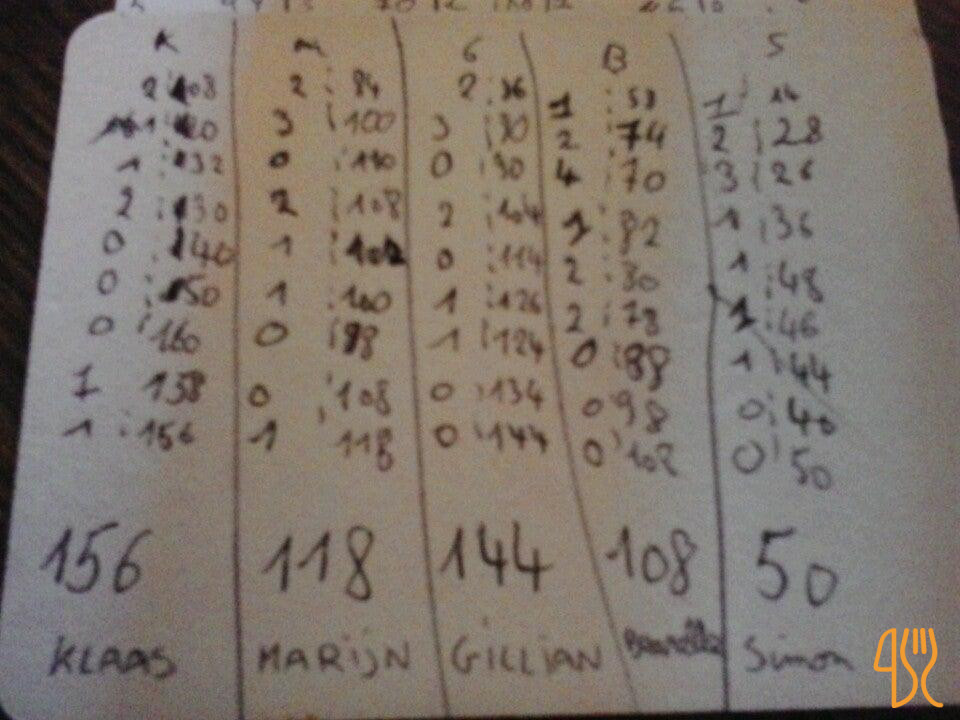 K M G B S
2 : 108 2 : 84 2 : 96 1 : 58 1 : 14
1 120 3 : 100 3 : 90 2 : 74 2 : 28
1 : 132 0 : 110 0 : 90 4 : 70 3 : 26
2 : 130 2 : 108 2 : 104 1 : 82 1 : 36
0 : 140 1 : 102 0 : 114 2 : 80 1 : 48
0 : 150 1 : 100 1 : 126 2 : 78 1 : 46
0 : 160 0 : 98 1 : 124 0 : 88 1 : 44
1 158 0 : 108 0 : 134 0 98 0 : 40
1 : 156 1 118 0 : 144 0 : 102 0 : 50
156 118 144 108 50
KLAAS MARIJN GILLIAN Simon